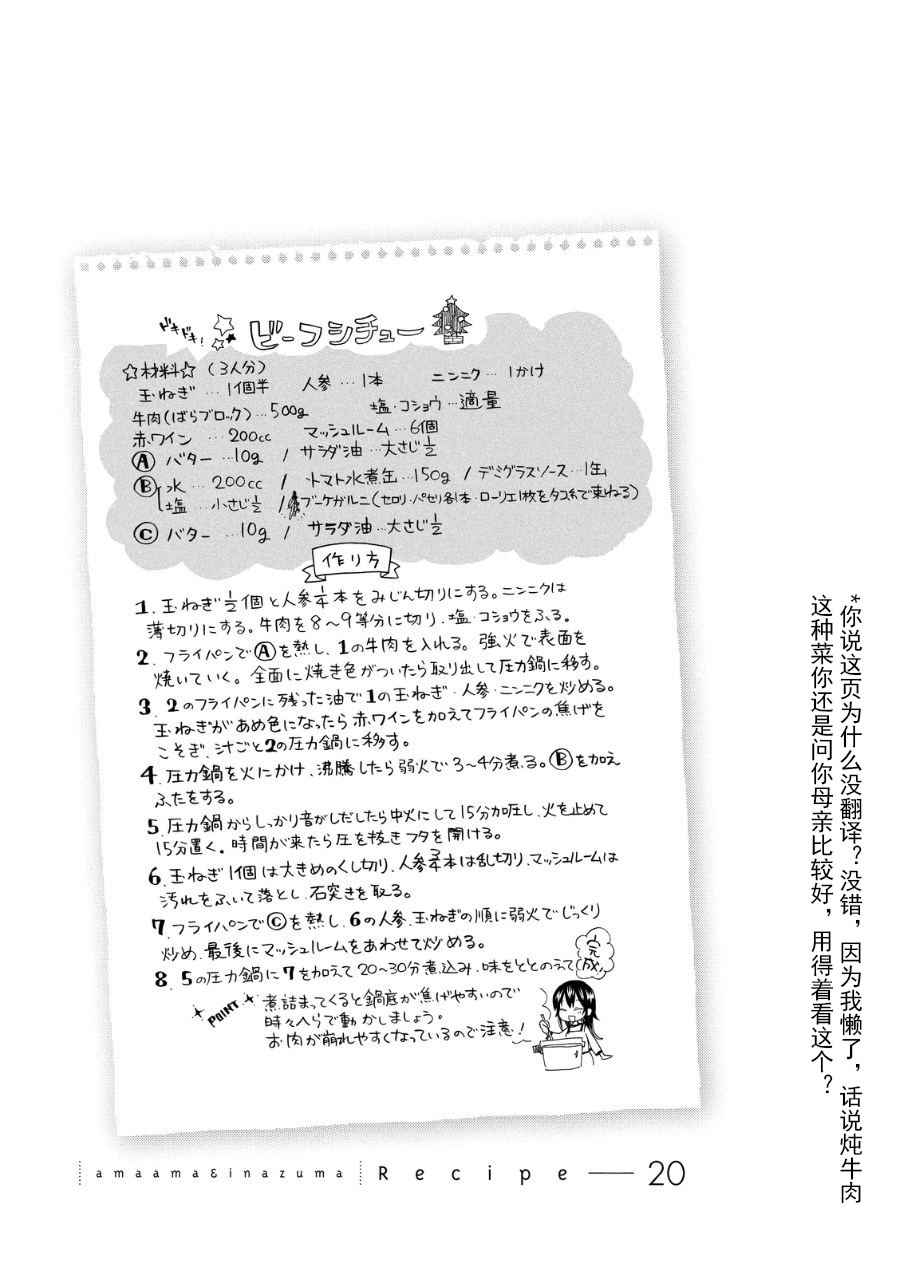 ドキドキ!
ビーフシチュー
☆材料☆(3人分)
玉ねぎ…1個半 人参…1本 ニンニク…1かけ
牛肉(ばらブロック)…500g 塩・コショウ…適量
赤ワイン…200cc マッシュルーム…6個
Ⓐ バター…10g / サラダ油…大さじ½
Ⓑ 水…200cc / トマト水煮缶…150g / デミグラスソース…1缶
塩…小さじ½ / ブーケガルニ(セロリ・パセリ各1本・ローリエ1枚をタコ糸で束ねる)
Ⓒ バター…10g / サラダ油…大さじ½
作り方
1. 玉ねぎ½個と人参¼本をみじん切りにする。ニンニクは
薄切りにする。牛肉を8〜9等分に切り、塩・コショウをふる。
2. フライパンでⒶを熱し、1の牛肉を入れる。強火で表面を
焼いていく。全面に焼き色がついたら取り出して圧力鍋に移す。
3. 2のフライパンに残った油で1の玉ねぎ・人参・ニンニクを炒める。
玉ねぎがあめ色になったら赤ワインを加えてフライパンの焦げを
こそぎ、汁ごと2の圧力鍋に移す。
4. 圧力鍋を火にかけ、沸騰したら弱火で3〜4分煮る。Ⓑを加え
ふたをする。
5. 圧力鍋からしっかり音がしだしたら中火にして15分加圧し、火を止めて
15分置く。時間が来たら圧を抜きフタを開ける。
6. 玉ねぎ1個は大きめのくし切り、人参¾本は乱切り、マッシュルームは
汚れをふいて落とし、石突きを取る。
7. フライパンでⒸを熱し、6の人参、玉ねぎの順に弱火でじっくり
炒め、最後にマッシュルームをあわせて炒める。
8. 5の圧力鍋に7を加えて20〜30分煮込み、味をととのえて
完成
POINT
煮詰まってくると鍋底が焦げやすいので
時々へらで動かしましょう。
お肉が崩れやすくなっているので注意!
amaama&inazuma Recipe 20
*你说这页为什么没翻译?没错,因为我懒了,话说炖牛肉
这种菜你还是问你母亲比较好,用得着看这个?